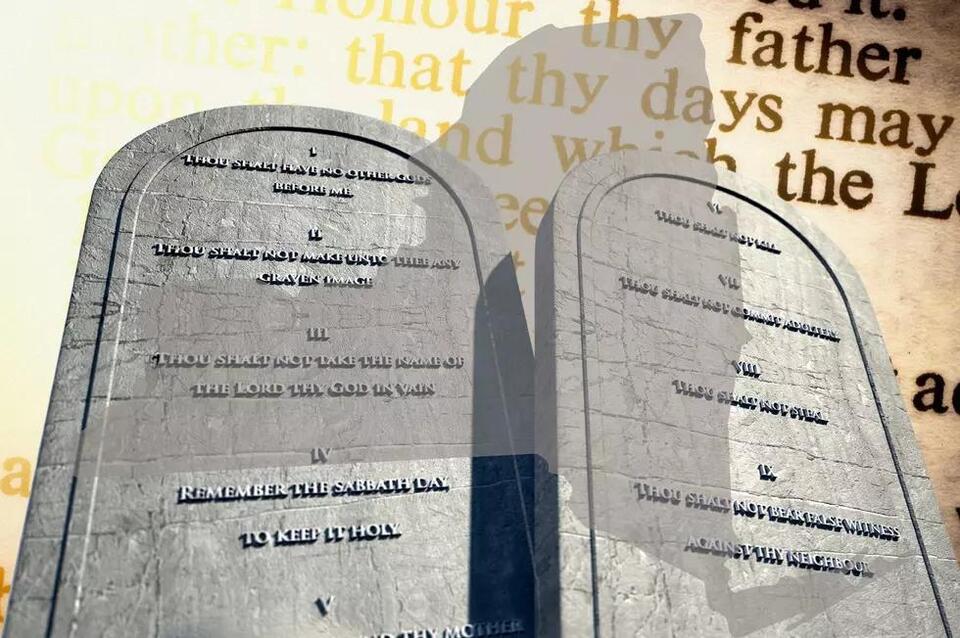 ed it.
Honour thy father
other: that thy days may
upon the land which the
I
THOU SHALT HAVE NO OTHER GODS
BEFORE ME.
II
THOU SHALT NOT MAKE UNTO THEE ANY
GRAVEN IMAGE
III
THOU SHALT NOT TAKE THE NAME OF
THE LORD THY GOD IN VAIN
IV
REMEMBER THE SABBATH DAY,
TO KEEP IT HOLY.
V
AND THY MOTHER
VI
THOU SHALT NOT KILL.
VII
THOU SHALT NOT COMMIT ADULTERY.
VIII
THOU SHALT NOT STEAL.
IX
THOU SHALT NOT BEAR FALSE WITNESS
AGAINST THY NEIGHBOUR